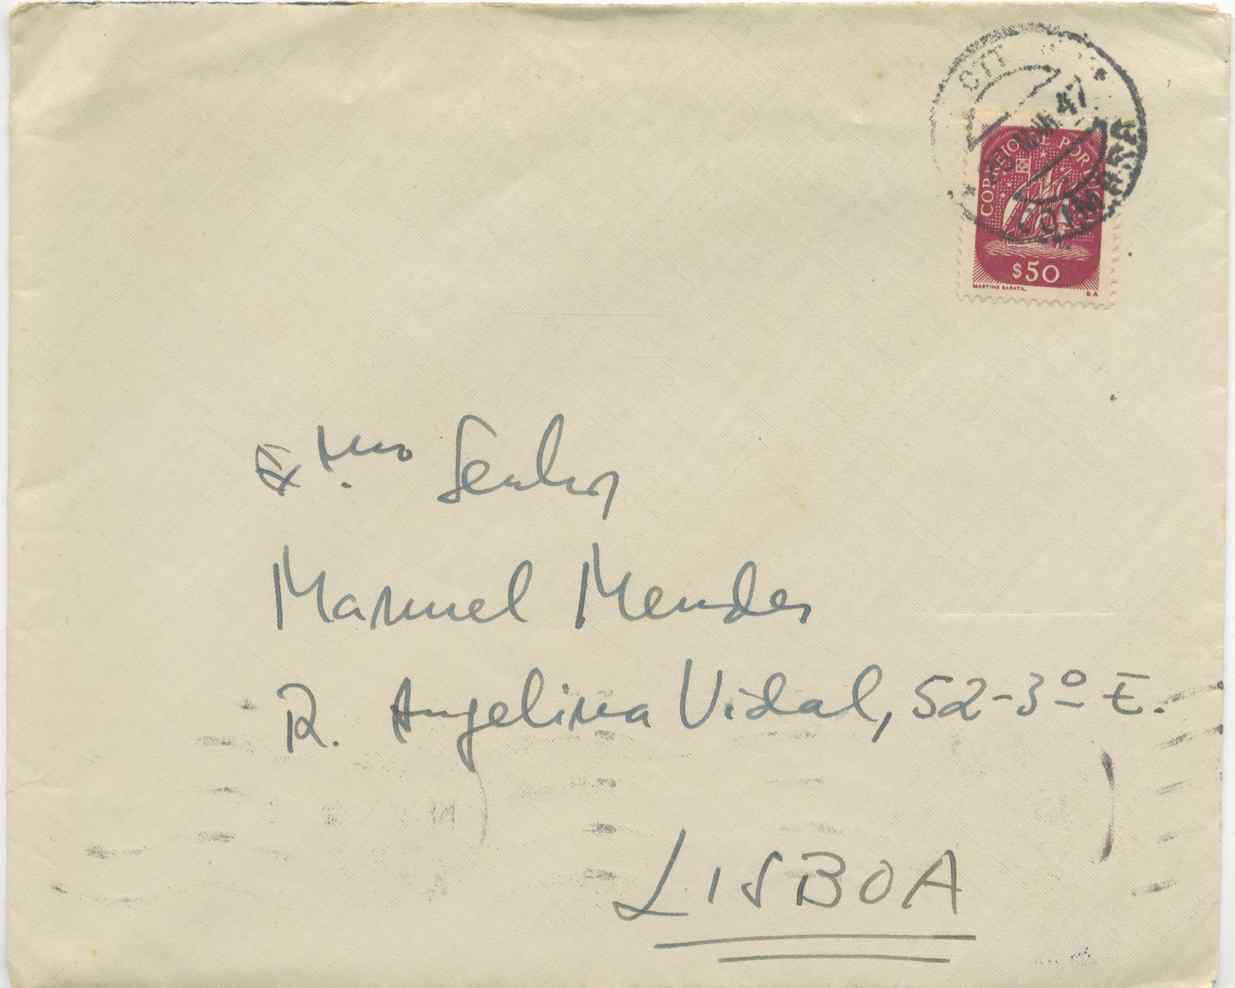 CTT
47
COIMBRA
CORREIO DE PORT
$50
MARTINS BARATA.
Exmo. Senhor
Manuel Mendes
R. Angelina Vidal, 52-3º E.
LISBOA